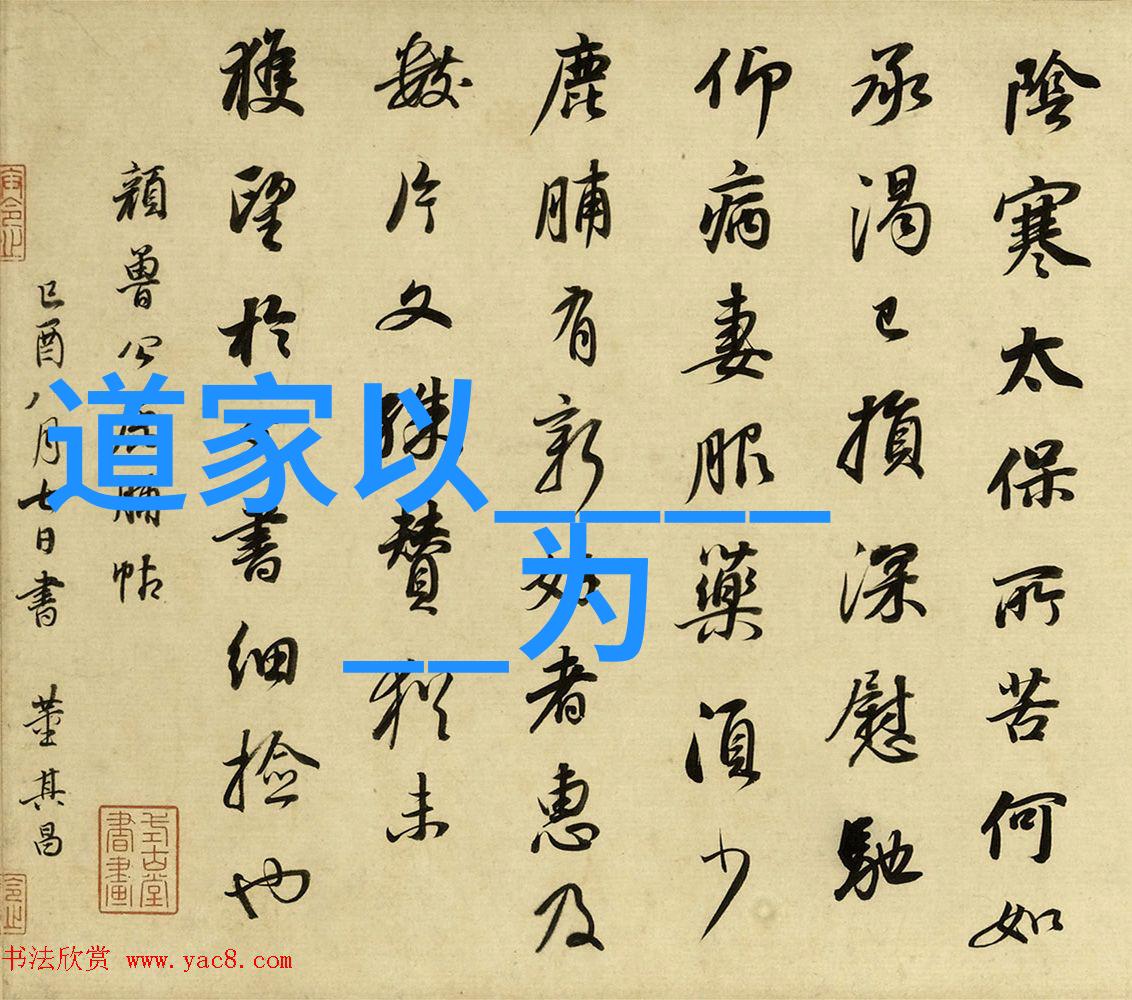 道家以____
__为
陰寒太保所苦何如
承渴已損深慰馳
仰病妻服藥須少
鹿脯有新好者惠及
數片又殊贊積未
獲望於書細撿也
顏魯公脯帖
己酉八月七日書 董其昌
式古堂書畫
书法欣赏 www.yac8.com